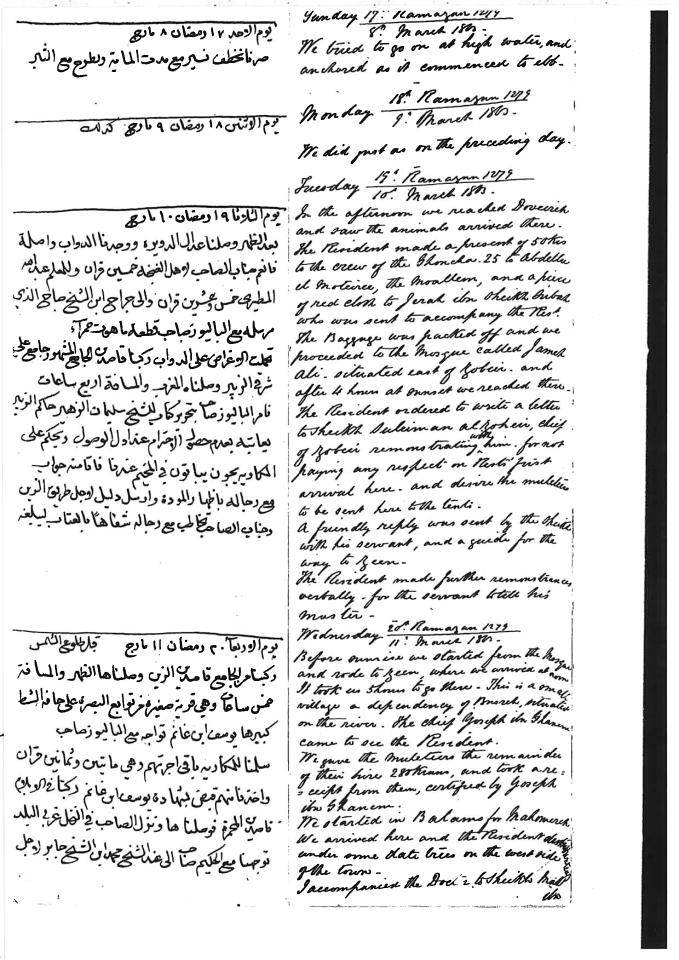 يوم الاحد ١٧ رمضان ٨ مارچ
صرنا نخطف نسير مع مدت الماية ونطرح مع الثبر
يوم الاثنين ١٨ رمضان ٩ مارچ كذلك
يوم الثلوثا ١٩ رمضان ١٠ مارچ
بعد الظهر وصلنا عند الدويرة ووجدنا الدواب واصلة
فانعم جناب الصاحب لاهل الغنچة خمسين قران وللمعلم عبدالله
المطيري خمس وعشرين قران والى جراح ابن الشيخ صباح الذي
مرسله مع الباليوز صاحب قطعة ماهوت حمراء
على الدواب ركبنا قاصدين الجامع المشهور جامع علي
شرقي الزبير وصلناه المغرب والمسافة اربع ساعات
فامر الباليوز صاحب بتحرير كتاب للشيخ سليمان الزهير حاكم الزبير
يعاتبه بعدم حصول الاحترام عند اول الوصول ويحكم على
المكاريه يجون يباتون في المخيم عندنا فاتا منه جواب
مع رجاله باظهار المودة وارسل دليل لاجل طريق الزين
وجناب الصاحب تخاطب مع رجاله شفاهًا بالعتاب ليبلغه
يوم الاربعا ٢٠ رمضان ١١ مارچ قبل طلوع الشمس
ركبنا من الجامع قاصدين الزين وصلناها الظهر والمسافة
خمس ساعات وهي قرية صغيرة من توابع البصرة على حافة الشط
كبيرها يوسف ابن غانم تواجه مع الباليوز صاحب
سلمنا المكاريه باقي اجرتهم وهي مايتين وثمانين قران
واخذنا منهم قبض بشهادة يوسف ابن غانم ركبنا في الابلام
قاصدين المحمرة فوصلناها ونزل الصاحب في النخل غربي البلد
توجهنا مع الحكيم صاحب الى عند الشيخ محمد ابن الشيخ جابر لاجل
Sunday 17th Ramazan 1279
8th March 1863.
We tried to go on at high water, and
anchored as it commenced to ebb-
Monday 18th Ramazan 1279
9th March 1863.
We did just as on the preceding day.
Tuesday 19th Ramazan 1279
10th March 1863.
In the afternoon we reached Doveirih
and saw the animals arrived there.
The Resident made a present of 50 Krs
to the crew of the Ghoncha. 25 to Abdella
el Moteiree, the Moallem, and a piece
of red cloth to Jerah ibn Sheikh Subah
who was sent to accompany the Rest.
The Baggage was packed off and we
proceeded to the Mosque called Jameh
Ali. situated east of Zobeir. and
after 4 hours at sunset we reached there-
The Resident ordered to write a letter
to Sheikh Suleiman al Zoheir, chief
of Zobeir remonstrating with him. for not
paying any respect on Rests first
arrival here. and desire the muleteers
to be sent here to the tents.
A friendly reply was sent by the Sheikh
with his servant, and a guide for the
way to Zeen-
The Resident made further remonstrances
verbally. for the servant to tell his
master-
Wednesday 20th Ramazan 1279
11th March 1863.
Before sunrise we started from the Mosque
and rode to Zeen, where we arrived at noon
It took us 5 hours to go there- This is a small
village a dependency of Busreh, situated
on the river. The chief Yoseph ibn Ghanem
came to see the Resident.
We gave the muleteers the remainder
of their hire 280 Krans, and took a re=
=ceipt from them, certified by Yoseph
ibn Ghanem.
We started in Balams for Mahomerah
We arrived here and the Resident
under some date trees on the west side
of the town-
I accompanied the Doct = to Sheikh
ibn